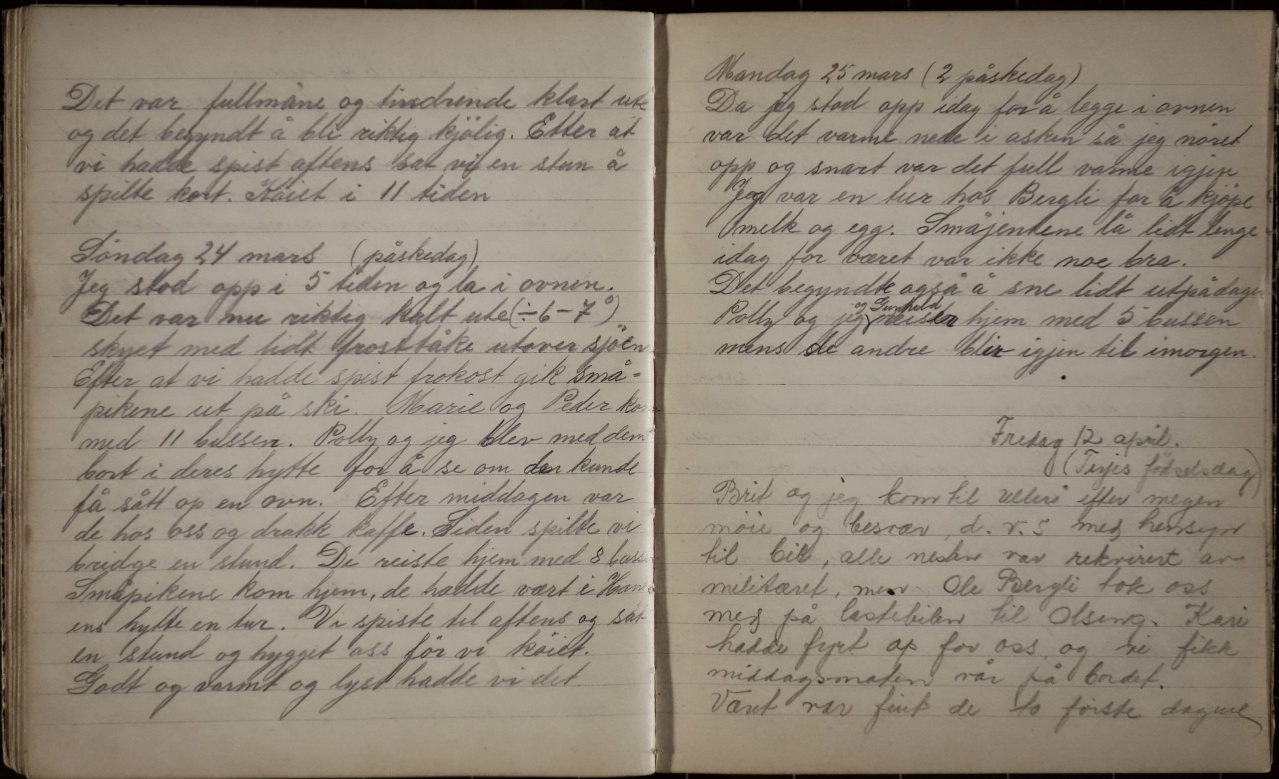 Det var fullmåne og tindrende klart ute
og det begyndt å bli riktig kjölig. Etter at
vi hadde spist aftens sat vi en stun å
spilte kort. Köiet i 11 tiden
Söndag 24 mars (påskedag)
Jeg stod opp i 5 tiden og la i ovnen.
Det var nu riktig kalt ute (÷6-7°)
skyet med lidt frosttåke utover sjöen
Efter at vi hadde spist frokost gik små-
pikene ut på ski. Marie og Peder kom
med 11 bussen. Polly og jeg blev med dem
bort i deres hytte for å se om den kunde
få sått op en ovn. Efter middagen var
de hos oss og drakk kaffe. Siden spilte vi
bridge en stund. De reiste hjem med 8 bussen
Småpikene kom hjem, de hadde vært i
ens hytte en tur. Vi spiste til aftens og sat
en stund og hygget oss för vi köiet.
Godt og varmt og lyst hadde vi det
Mandag 25 mars (2 påskedag)
Da jeg stod opp idag for å legge i ovnen
var det varme nede i asken så jeg nöret
opp og snart var det full varme igjen
Jeg var en tur hos Bergli for å kjöpe
melk og egg. Småjentene lå lidt lenge
idag for været var ikke noe bra.
Det begyndte også å sne lidt utpådagen
Polly og jeg og Gunhild reiser hjem med 5 bussen
mens de andre blir igjen til imorgen.
Fredag 12 april.
(Terjes födselsdag)
Brit og jeg kom til efter megen
möie og besvær, d.v.s med hensyn
til bil, alle nesten var rekvirert av
militæret, men Ole Bergli tok oss
med på lastebilen til Olseng. Kari
hadde fyrt op for oss, og vi fikk
middagsmaten vår på bordet.
Været var fint de to förste dagene